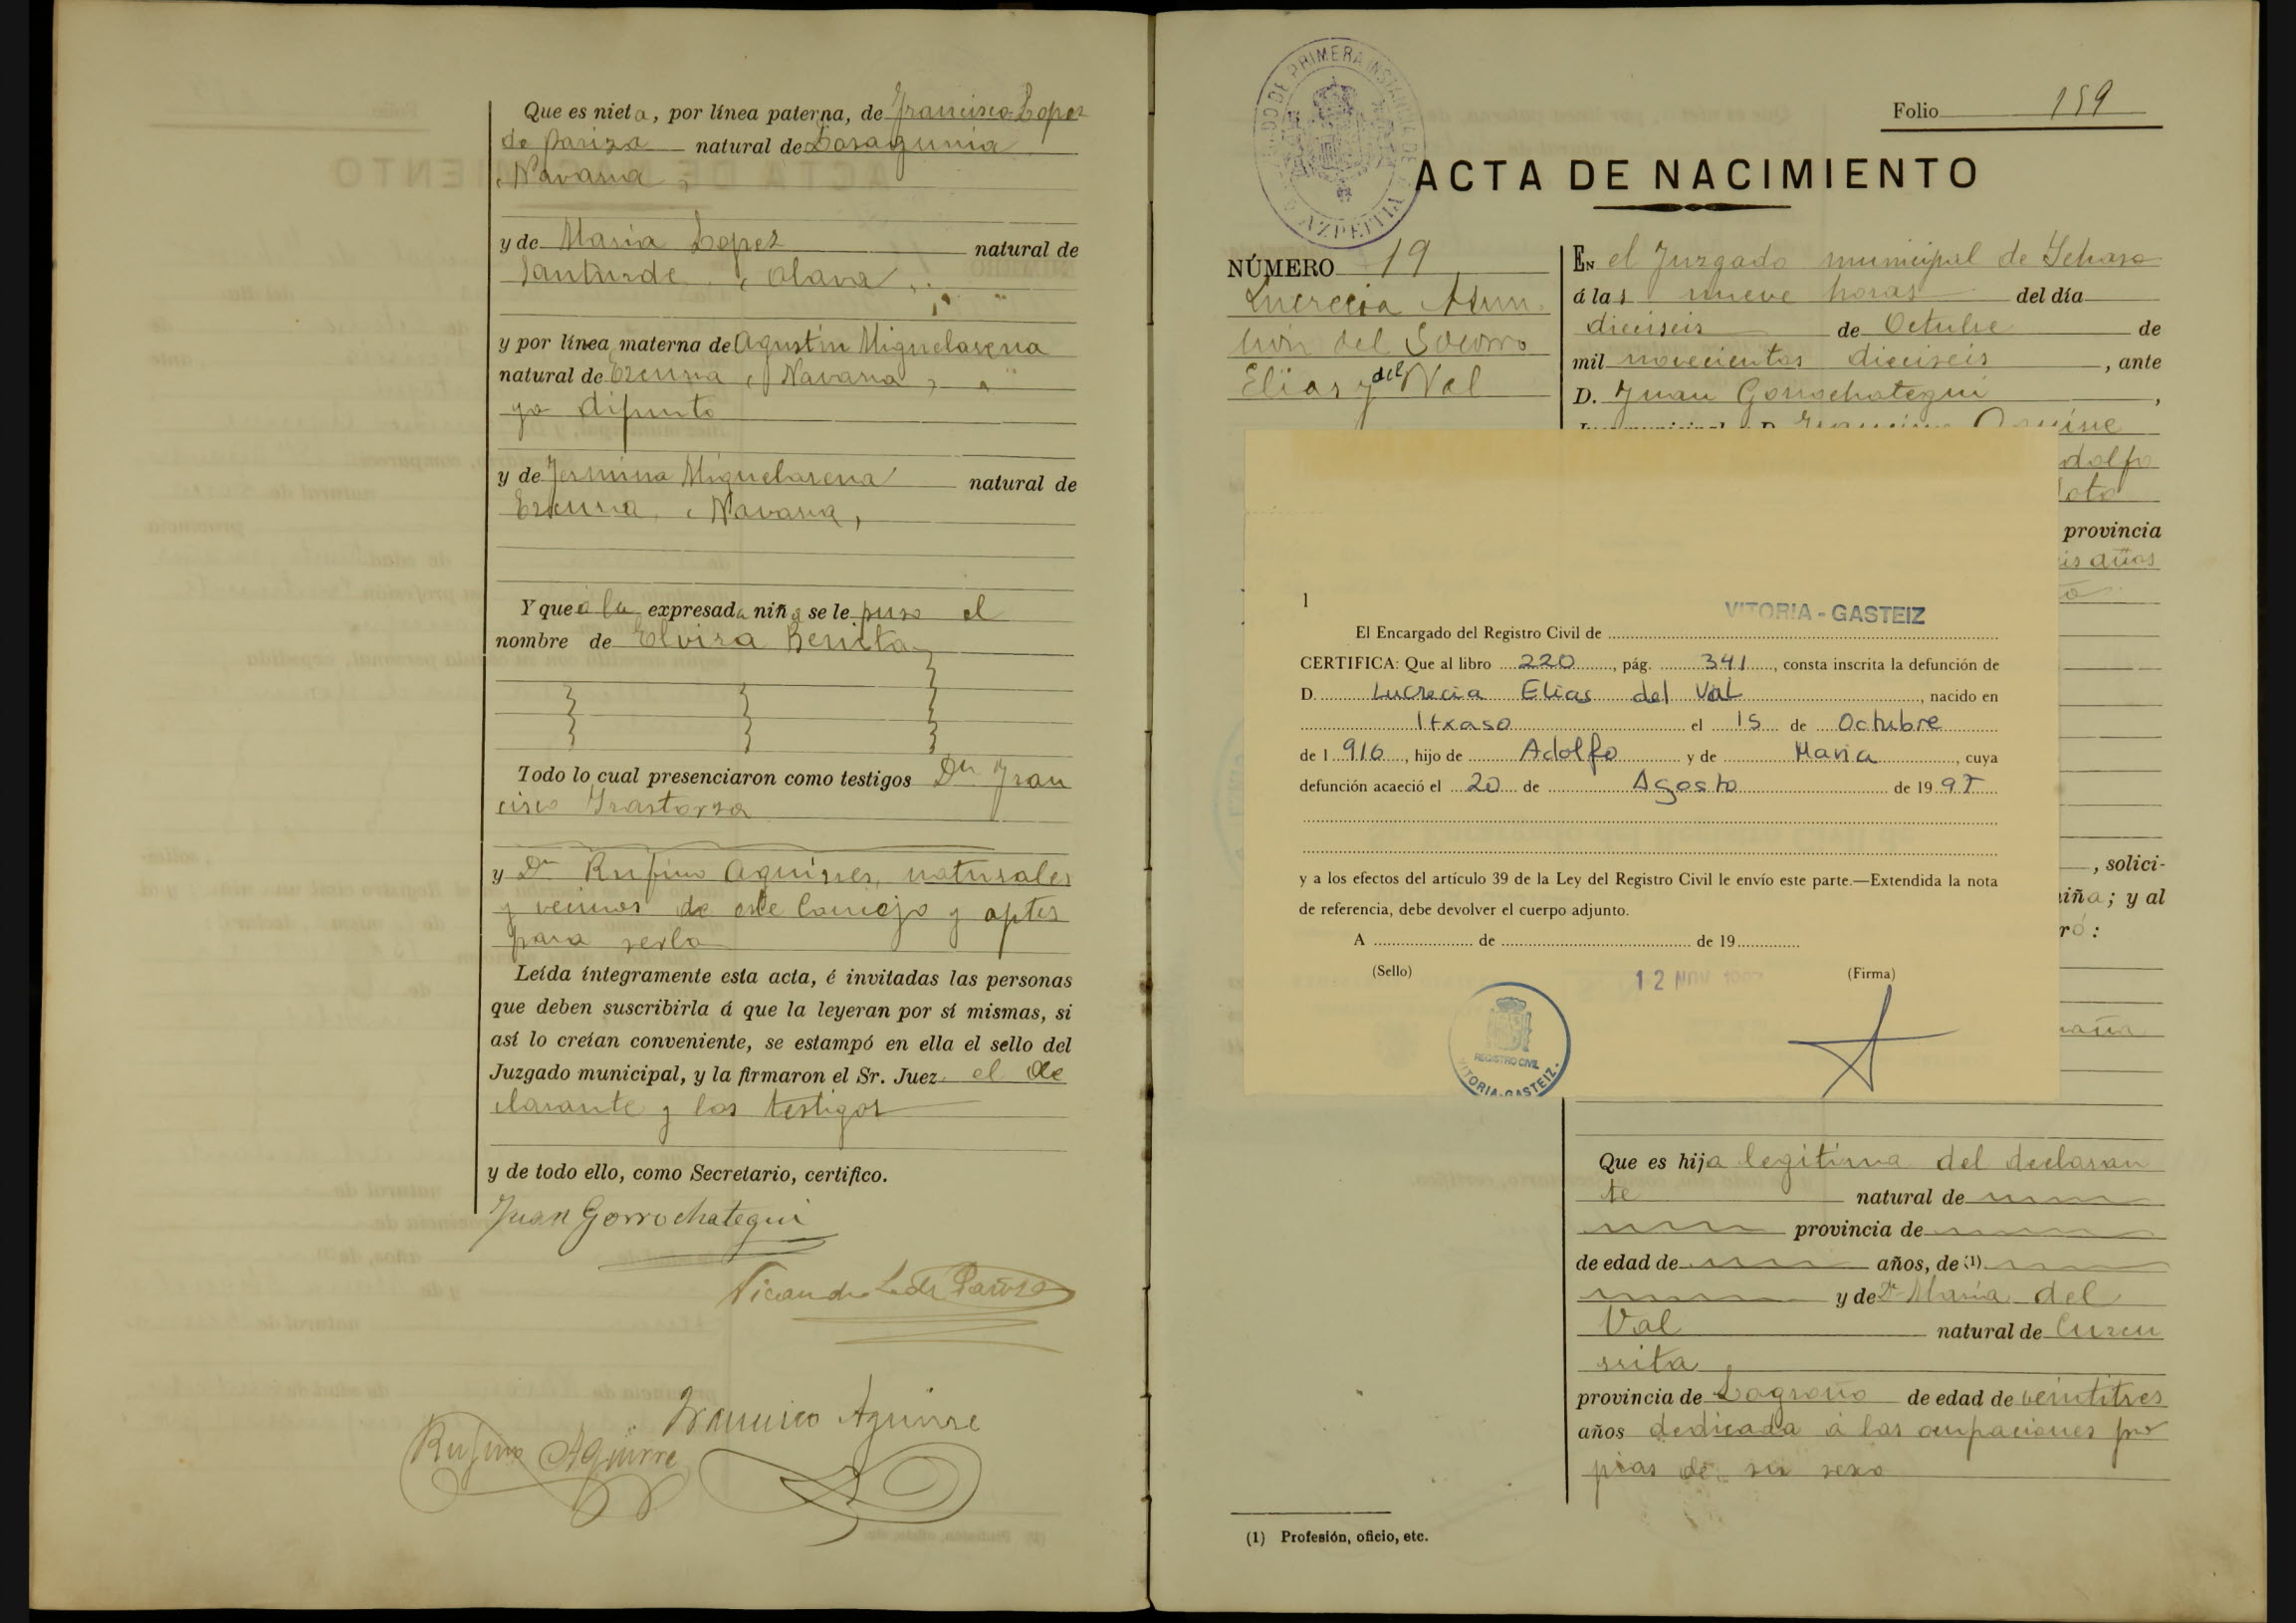 Que es nieta, por línea paterna, de Francisco Lopez
de Pariza natural de
Navarra,
y de Maria Lopez natural de
Santurde, Alava,
y por línea materna de Agustin Miguelarena
natural de Ezcurra, Navarra,
ya difunto
y de Fermina Miguelarena natural de
Ezcurra, Navarra,
Y que á la expresada niña se le puso el
nombre de Elvira Benita
Todo lo cual presenciaron como testigos Dn Fran
cisco Irastorza
y Dn Rufino Aguirre, naturales
y vecinos de este Concejo y aptos
para serlo
Leída íntegramente esta acta, é invitadas las personas
que deben suscribirla á que la leyeran por sí mismas, si
así lo creían conveniente, se estampó en ella el sello del
Juzgado municipal, y la firmaron el Sr. Juez el de
clarante y los testigos
y de todo ello, como Secretario, certifico.
Juan Gorrochategui
Nicandro L. de Pariza
Francisco Aguirre
Rufino Aguirre
JUZGADO DE PRIMERA INSTANCIA DE AZPEITIA
Folio 159
ACTA DE NACIMIENTO
NÚMERO 19
Lucrecia Asun
ción del Socorro
Elias y del Val
EN el Juzgado municipal de Ichaso
á las nueve horas del día
dieciseis de Octubre de
mil novecientos dieciseis, ante
D. Juan Gorrochategui,
Aguirre
dolfo
provincia
is años
1
VITORIA - GASTEIZ
El Encargado del Registro Civil de
CERTIFICA: Que al libro 220, pág. 341, consta inscrita la defunción de
D. Lucrecia Elias del Val, nacido en
Itxaso el 15 de Octubre
de 1 916, hijo de Adolfo y de Maria, cuya
defunción acaeció el 20 de Agosto de 19 97
y a los efectos del artículo 39 de la Ley del Registro Civil le envío este parte.—Extendida la nota
de referencia, debe devolver el cuerpo adjunto.
A de de 19
(Sello) 12 NOV 1997 (Firma)
REGISTRO CIVIL
VITORIA-GASTEIZ
, solici-
niña; y al
ró:
Que es hija legitima del declaran
te natural de
provincia de
de edad de años, de (1)
y de Dª Maria del
Val natural de Cuzcu
rrita
provincia de Logroño de edad de veintitres
años dedicada á las ocupaciones pro
pias de su sexo
(1) Profesión, oficio, etc.